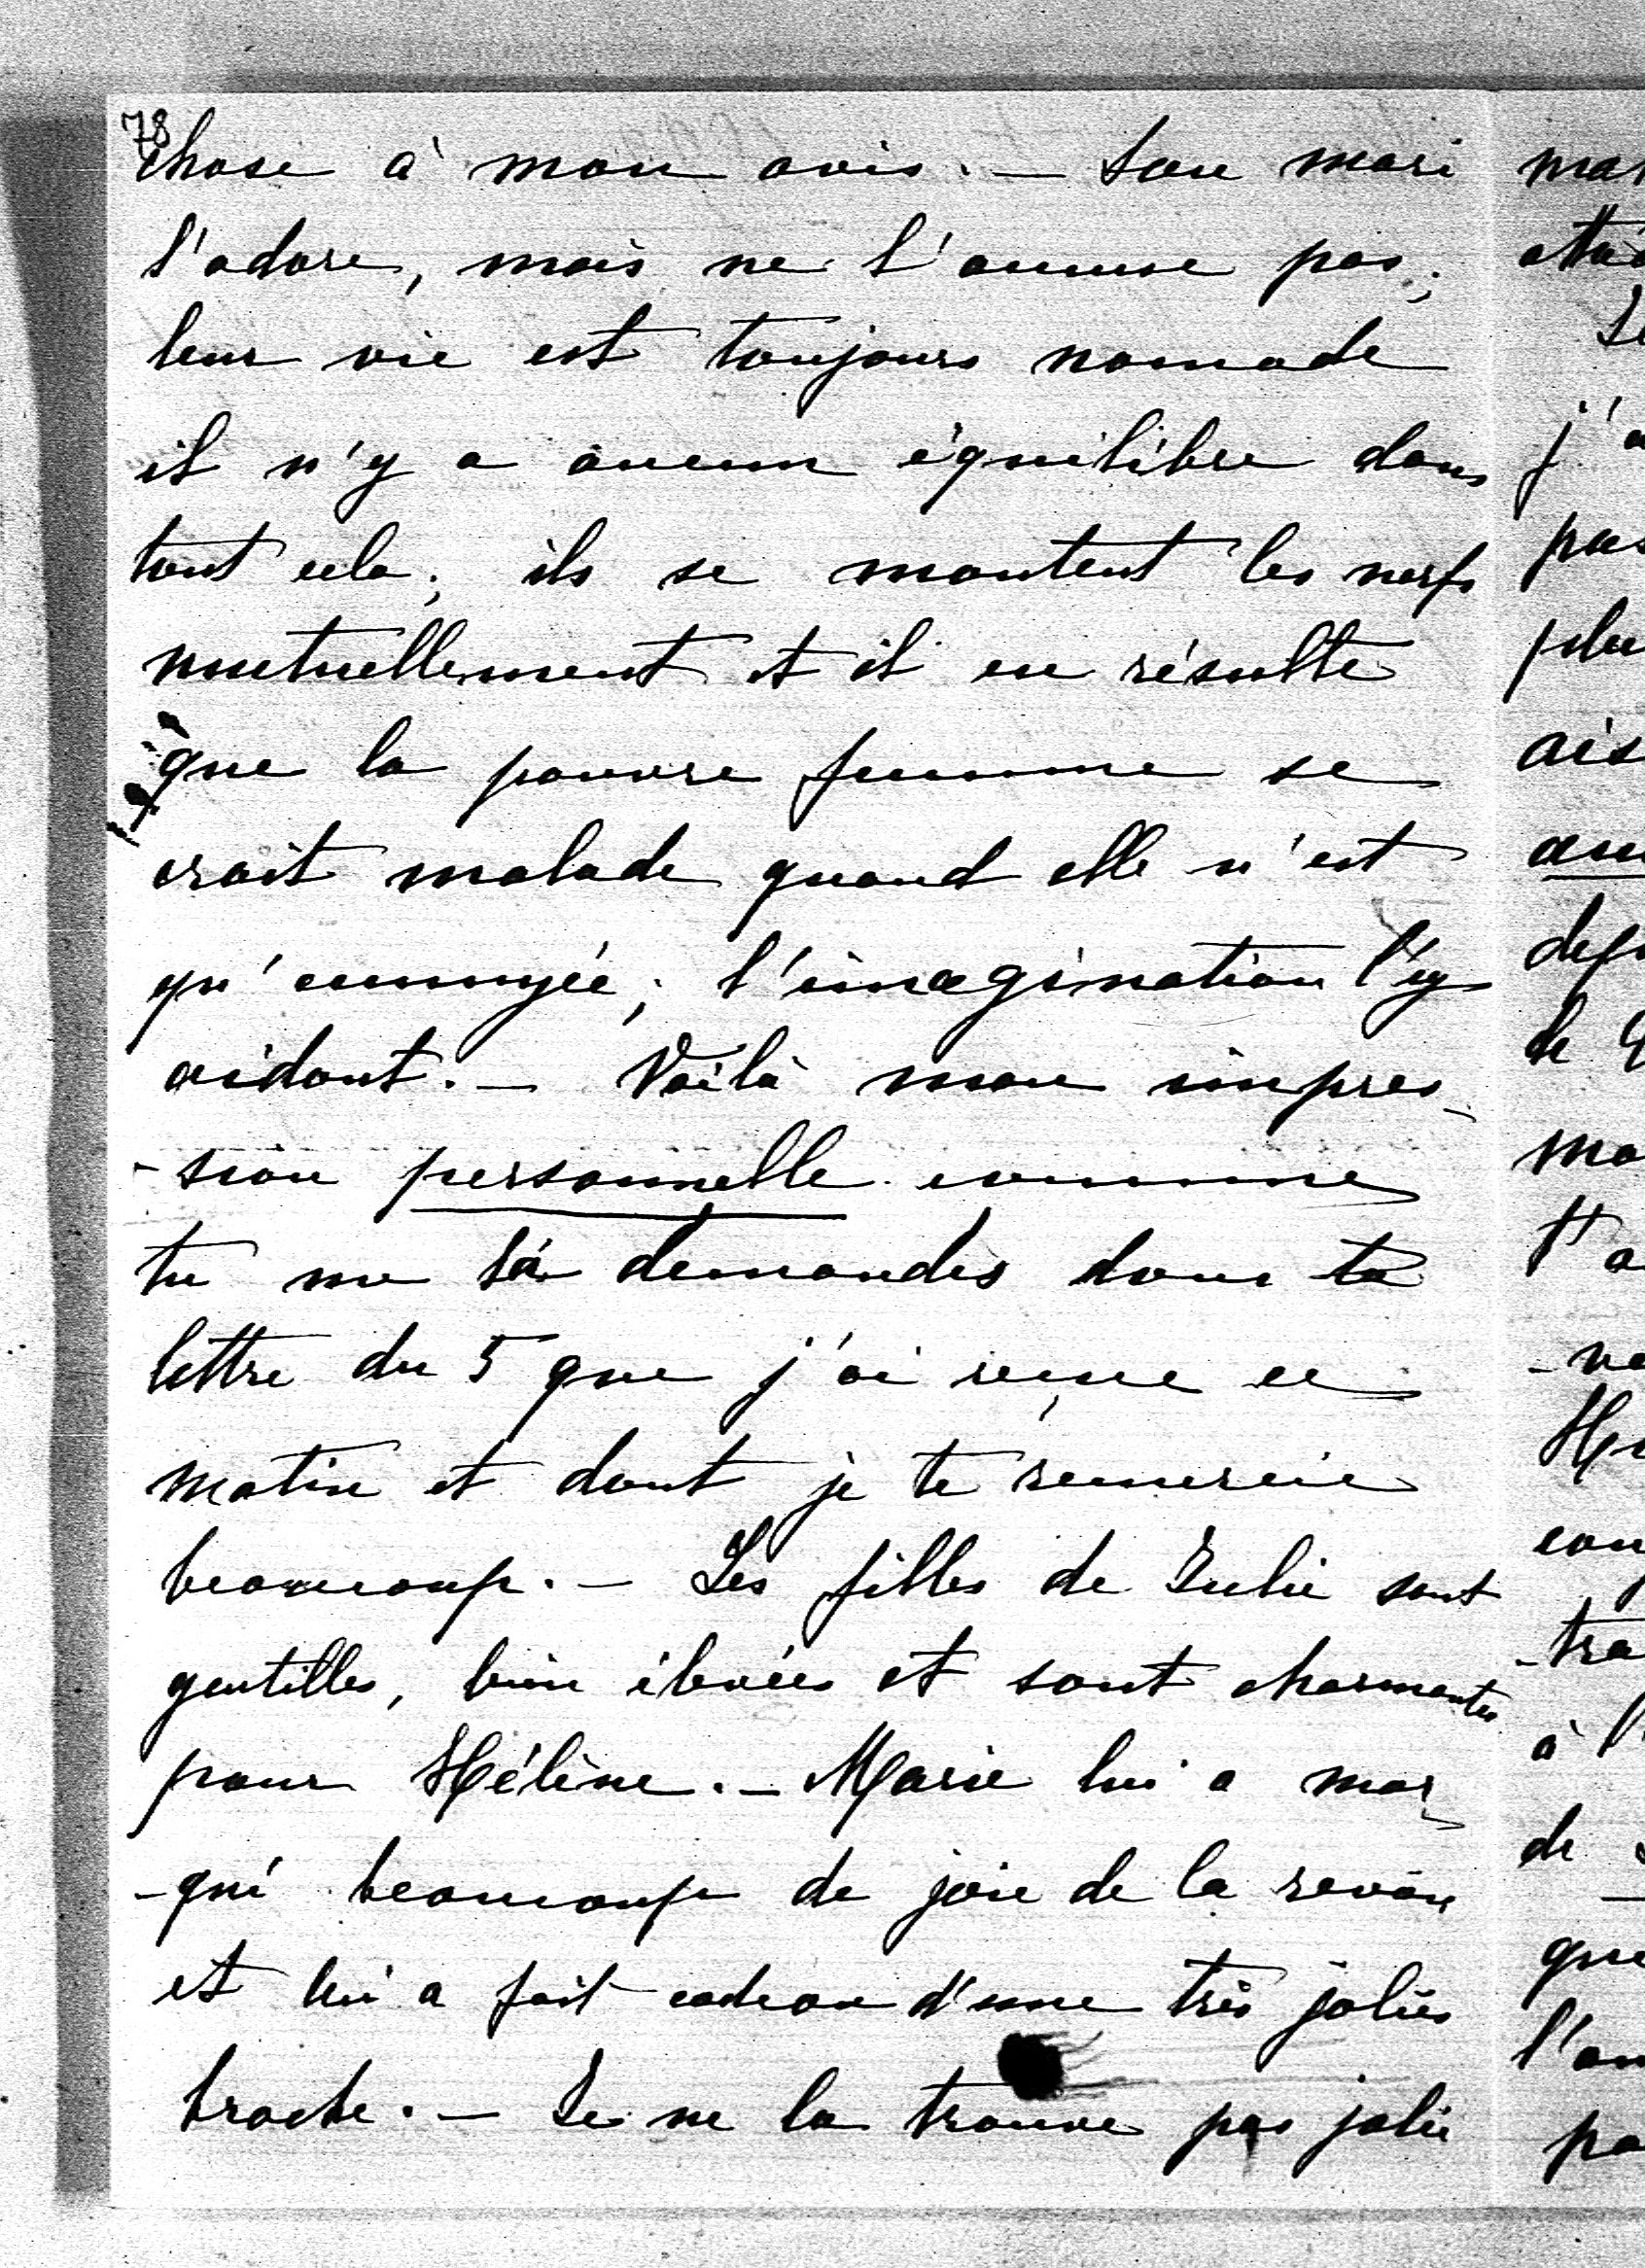 78
chose à mon avis. — Son mari
l'adore, mais ne l'amuse pas;
leur vie est toujours nomade
il n'y a aucun équilibre dans
tout cela; ils se montent les nerfs
mutuellement et il en résulte
que la pauvre femme se
croit malade quand elle n'est
qu'ennuyée; l'imagination l'y
aidant. — Voilà mon impres-
-sion personnelle comme
tu me la demandes dans ta
lettre du 5 que j'ai reçue ce
matin et dont je te remercie
beaucoup. — Les filles de Julie sont
gentilles, bien élevées et sont charmantes
pour Hélène. — Marie lui a mar-
-qué beaucoup de joie de la revoir
et lui a fait cadeau d'une très jolies
broche. — Je ne la trouve pas jolie